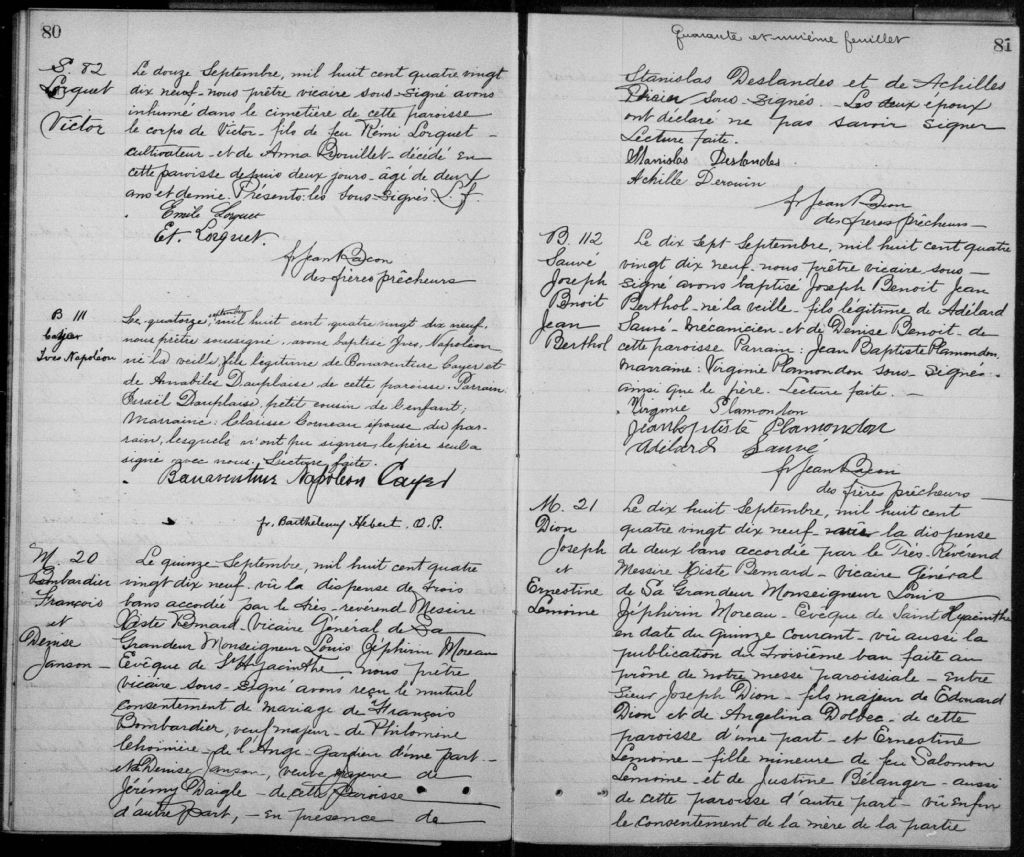 80
S. 82
Lorquet
Victor
Le douze Septembre, mil huit cent quatre vingt
dix neuf - nous prêtre vicaire sous-signé avons
inhumé dans le cimetière de cette paroisse
le corps de Victor - fils de feu Rémi Lorquet -
cultivateur - et de Anna Brouillet - décédé en
cette paroisse depuis deux jours - âgé de deux
ans et demie. Présents: les Sous-Signés. L. f.
Emile Lorquet
Et. Lorquet.
fr Jean Bacon
des frères prêcheurs
B 111
Cayer
Yves Napoléon
Le quatorze, septembre mil huit cent quatre vingt dix neuf,
nous prêtre soussigné, avons baptisé Yves, Napoléon
né la veille, fils légitime de Bonaventure Cayer et
de Annabiles Dauplaise de cette paroisse. Parrain:
Israël Dauplaise, petit cousin de l'enfant;
Marraine: Clarisse Corneau épouse du par-
rain, lesquels n'ont pu signer, le père seul a
signé avec nous. Lecture faite.
Bonaventure Napoléon Cayer
fr. Barthélemy Hébert. O. P.
M. 20
Bombardier
François
et
Denise
Janson -
Le quinze Septembre, mil huit cent quatre
vingt dix neuf - vû la dispense de trois
bans accordée par le très-révérend Messire
Xiste Bernard - Vicaire Général de Sa
Grandeur Monseigneur Louis Zéphirin Moreau
Evêque de St Hyacinthe, nous prêtre
vicaire sous-signé avons reçu le mutuel
consentement de mariage de François
Bombardier, veuf majeur - de Philomène
Choinière - de l'Ange-Gardien d'une part -
et Denise Janson -, veuve majeure de
Jérémy Daigle - de cette paroisse
d'autre part, - En présence de
Quarante et unième feuillet
81
Stanislas Deslandes et de Achilles
sous-signés. - Les deux époux
ont déclaré ne pas savoir signer
Lecture faite.
Stanislas Deslandes.
Achille Derouin
fr Jean Bacon
des frères prêcheurs -
B. 112
Sauvé
Joseph
Benoit
Jean
Berthol
Le dix sept Septembre, mil huit cent quatre
vingt dix neuf - nous prêtre vicaire sous -
signé avons baptisé Joseph Benoit Jean
Berthol - né la veille - fils légitime de Adélard
Sauvé - Mécanicien - et de Denise Benoit - de
cette paroisse Parrain: Jean Baptiste Plamondon,
marraine: Virginie Plamondon sous-signés -
ainsi que le père. Lecture faite. -
Virginie Plamondon
Jean Baptiste Plamondon
Adélard Sauvé
fr Jean Bacon
des frères prêcheurs -
M. 21
Dion
Joseph
et
Ernestine
Lemoine
Le dix huit Septembre, mil huit cent
quatre vingt dix neuf - la dispense
de deux bans accordée par le Très-Révérend
Messire Xiste Bernard - Vicaire Général
de Sa Grandeur Monseigneur Louis
Zéphirin Moreau - Evêque de Saint Hyacinthe
en date du quinze courant - vû aussi la
publication du troisième ban faite au
prône de notre messe paroissiale - entre
Sieur Joseph Dion - fils majeur de Edouard
Dion et de Angelina Dolbec - de cette
paroisse d'une part - et Ernestine
Lemoine - fille mineure de feu Salomon
Lemoine - et de Justine Bélanger - aussi
de cette paroisse d'autre part - vû enfin
le consentement de la mère de la partie